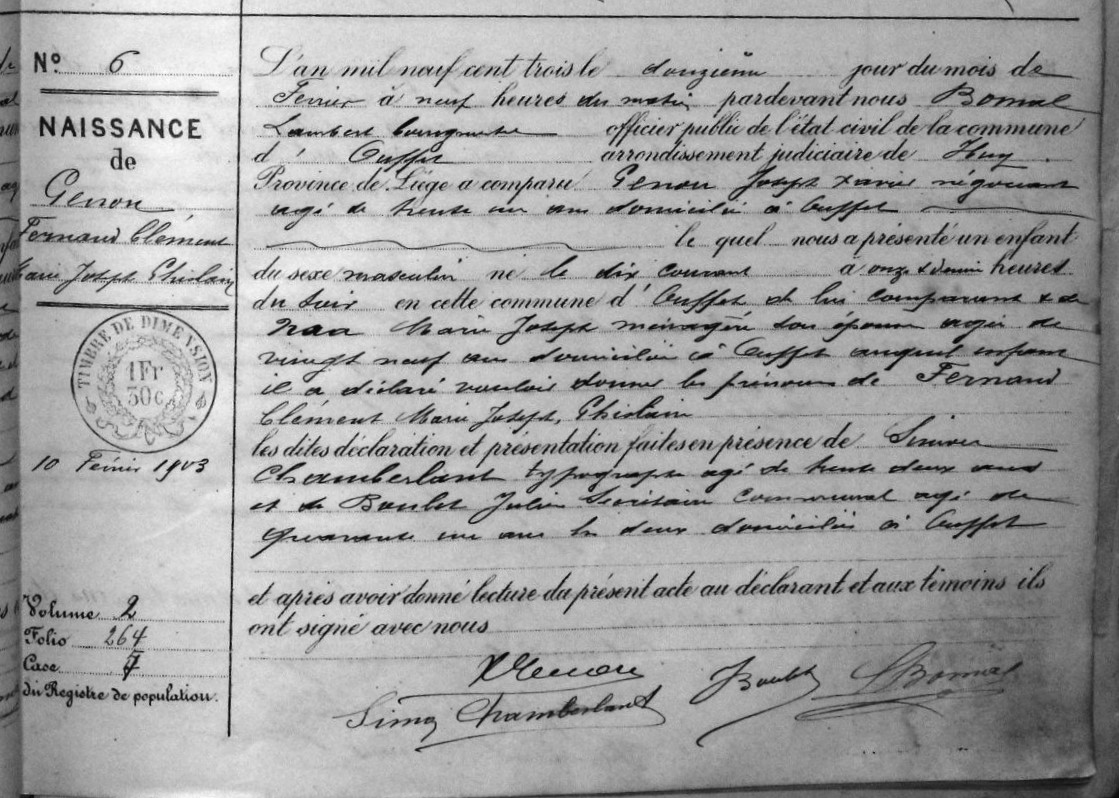 N° 6
NAISSANCE
de
Genon
Fernand Clément
Marie Joseph Ghislain
TIMBRE DE DIMENSION
1 Fr
30 c
10 Février 1903
Volume 2
Folio 264
Case 7
du Registre de population.
L'an mil neuf cent trois le douzième jour du mois de
Fevrier à neuf heures du matin pardevant nous Bomal
Lambert bourgmestre officier public de l'état civil de la commune
d' Ouffet arrondissement judiciaire de Huy
Province de Liège a comparu Genon Joseph Xavier négociant
agé de trente un ans domicilié à Ouffet
le quel nous a présenté un enfant
du sexe masculin né le dix courant à onze & demie heures
du soir en cette commune d' Ouffet de lui comparant & de
Marie Joseph ménagère son épouse agée de
vingt neuf ans domiciliée à Ouffet auquel enfant
il a déclaré vouloir donner les prénoms de Fernand
Clément Marie Joseph, Ghislain
les dites déclaration et présentation faites en présence de Simon
Chamberlant typographe agé de trente deux ans
et de Boulet Julien Secrétaire Communal agé de
quarante un ans les deux domiciliés à Ouffet
et après avoir donné lecture du présent acte au déclarant et aux témoins ils
ont signé avec nous
XGenon
JBoulet
LBomal
Simon Chamberlant